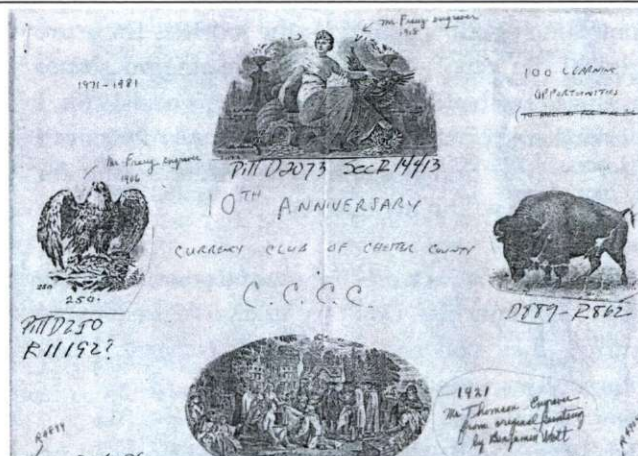 Mr Freuz engraver
1918
1971-1981
100 LEARNING
OPPORTUNITIES
Mr. Freuz engraver
1906
Pitt D2073 Sec R 14413
10TH ANNIVERSARY
CURRENCY CLUB OF CHESTER COUNTY
C.C.C.C.
250
250.
Pitt D250
R11192?
D889-R862
1921
Mr Thomson Engraver
from original painting
by Benjamin West